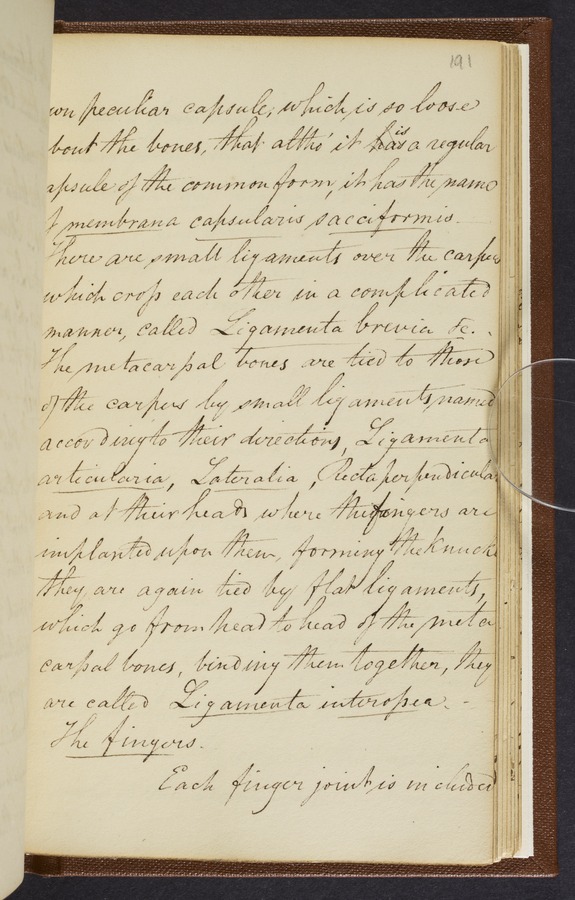 191
own peculiar capsule; which, is so loose
bout the bones, that altho' it is a regular
apsule of the common form, it has the name
f membrana capsularis sacciformis.
There are small ligaments over the carpus
which cross each other in a complicated
manner, called Ligamenta brevia &c. -
The metacarpal bones are tied to those
of the carpus by small ligaments, named
according to their directions, Ligamenta
articularia, Lateralia, Recta perpendicular
and at their heads where the fingers are
implanted upon them, forming the Knuck
they are again tied by flat ligaments,
which go from head to head of the meta
carpal bones, binding them together, they
are called Ligamenta interossea. -
The fingers.
Each finger joint, is included